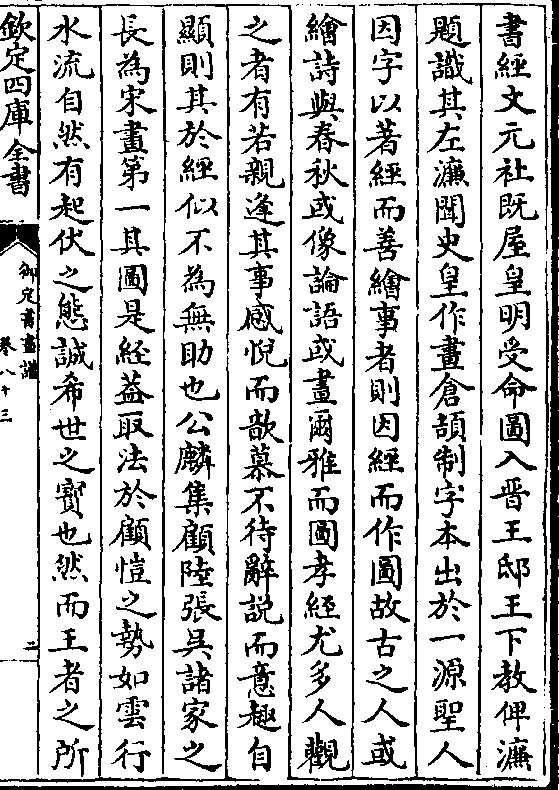 書經文元社既屋皇明受命圖入晋王邸王下教俾濂
題識其左濂聞史皇作畫倉頡制字本出於一源聖人
因字以著經而善繪事者則因經而作圖故古之人或
繪詩與春秋或像論語或畫爾雅而圖孝經尤多人觀
之者有若親逢其事感悅而歆慕不待辭説而意趣自
顯則其於經似不為無助也公麟集顧陸張吳諸家之
長為宋畫第一其圖是經葢取法於顧愷之勢如雲行
水流自然有起伏之態誠希世之寳也然而王者之所
欽定四庫全書
御定書畫譜
卷八十三
二